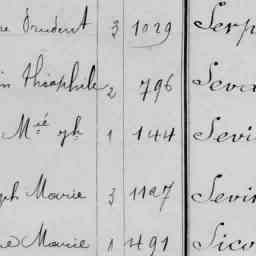 Prudent 3 1029 Serp
Théophile 2 796 Seva
Mié yh 1 144 Sevi
ph Marie 3 1127 Sevin
Marie 1 491 Sico